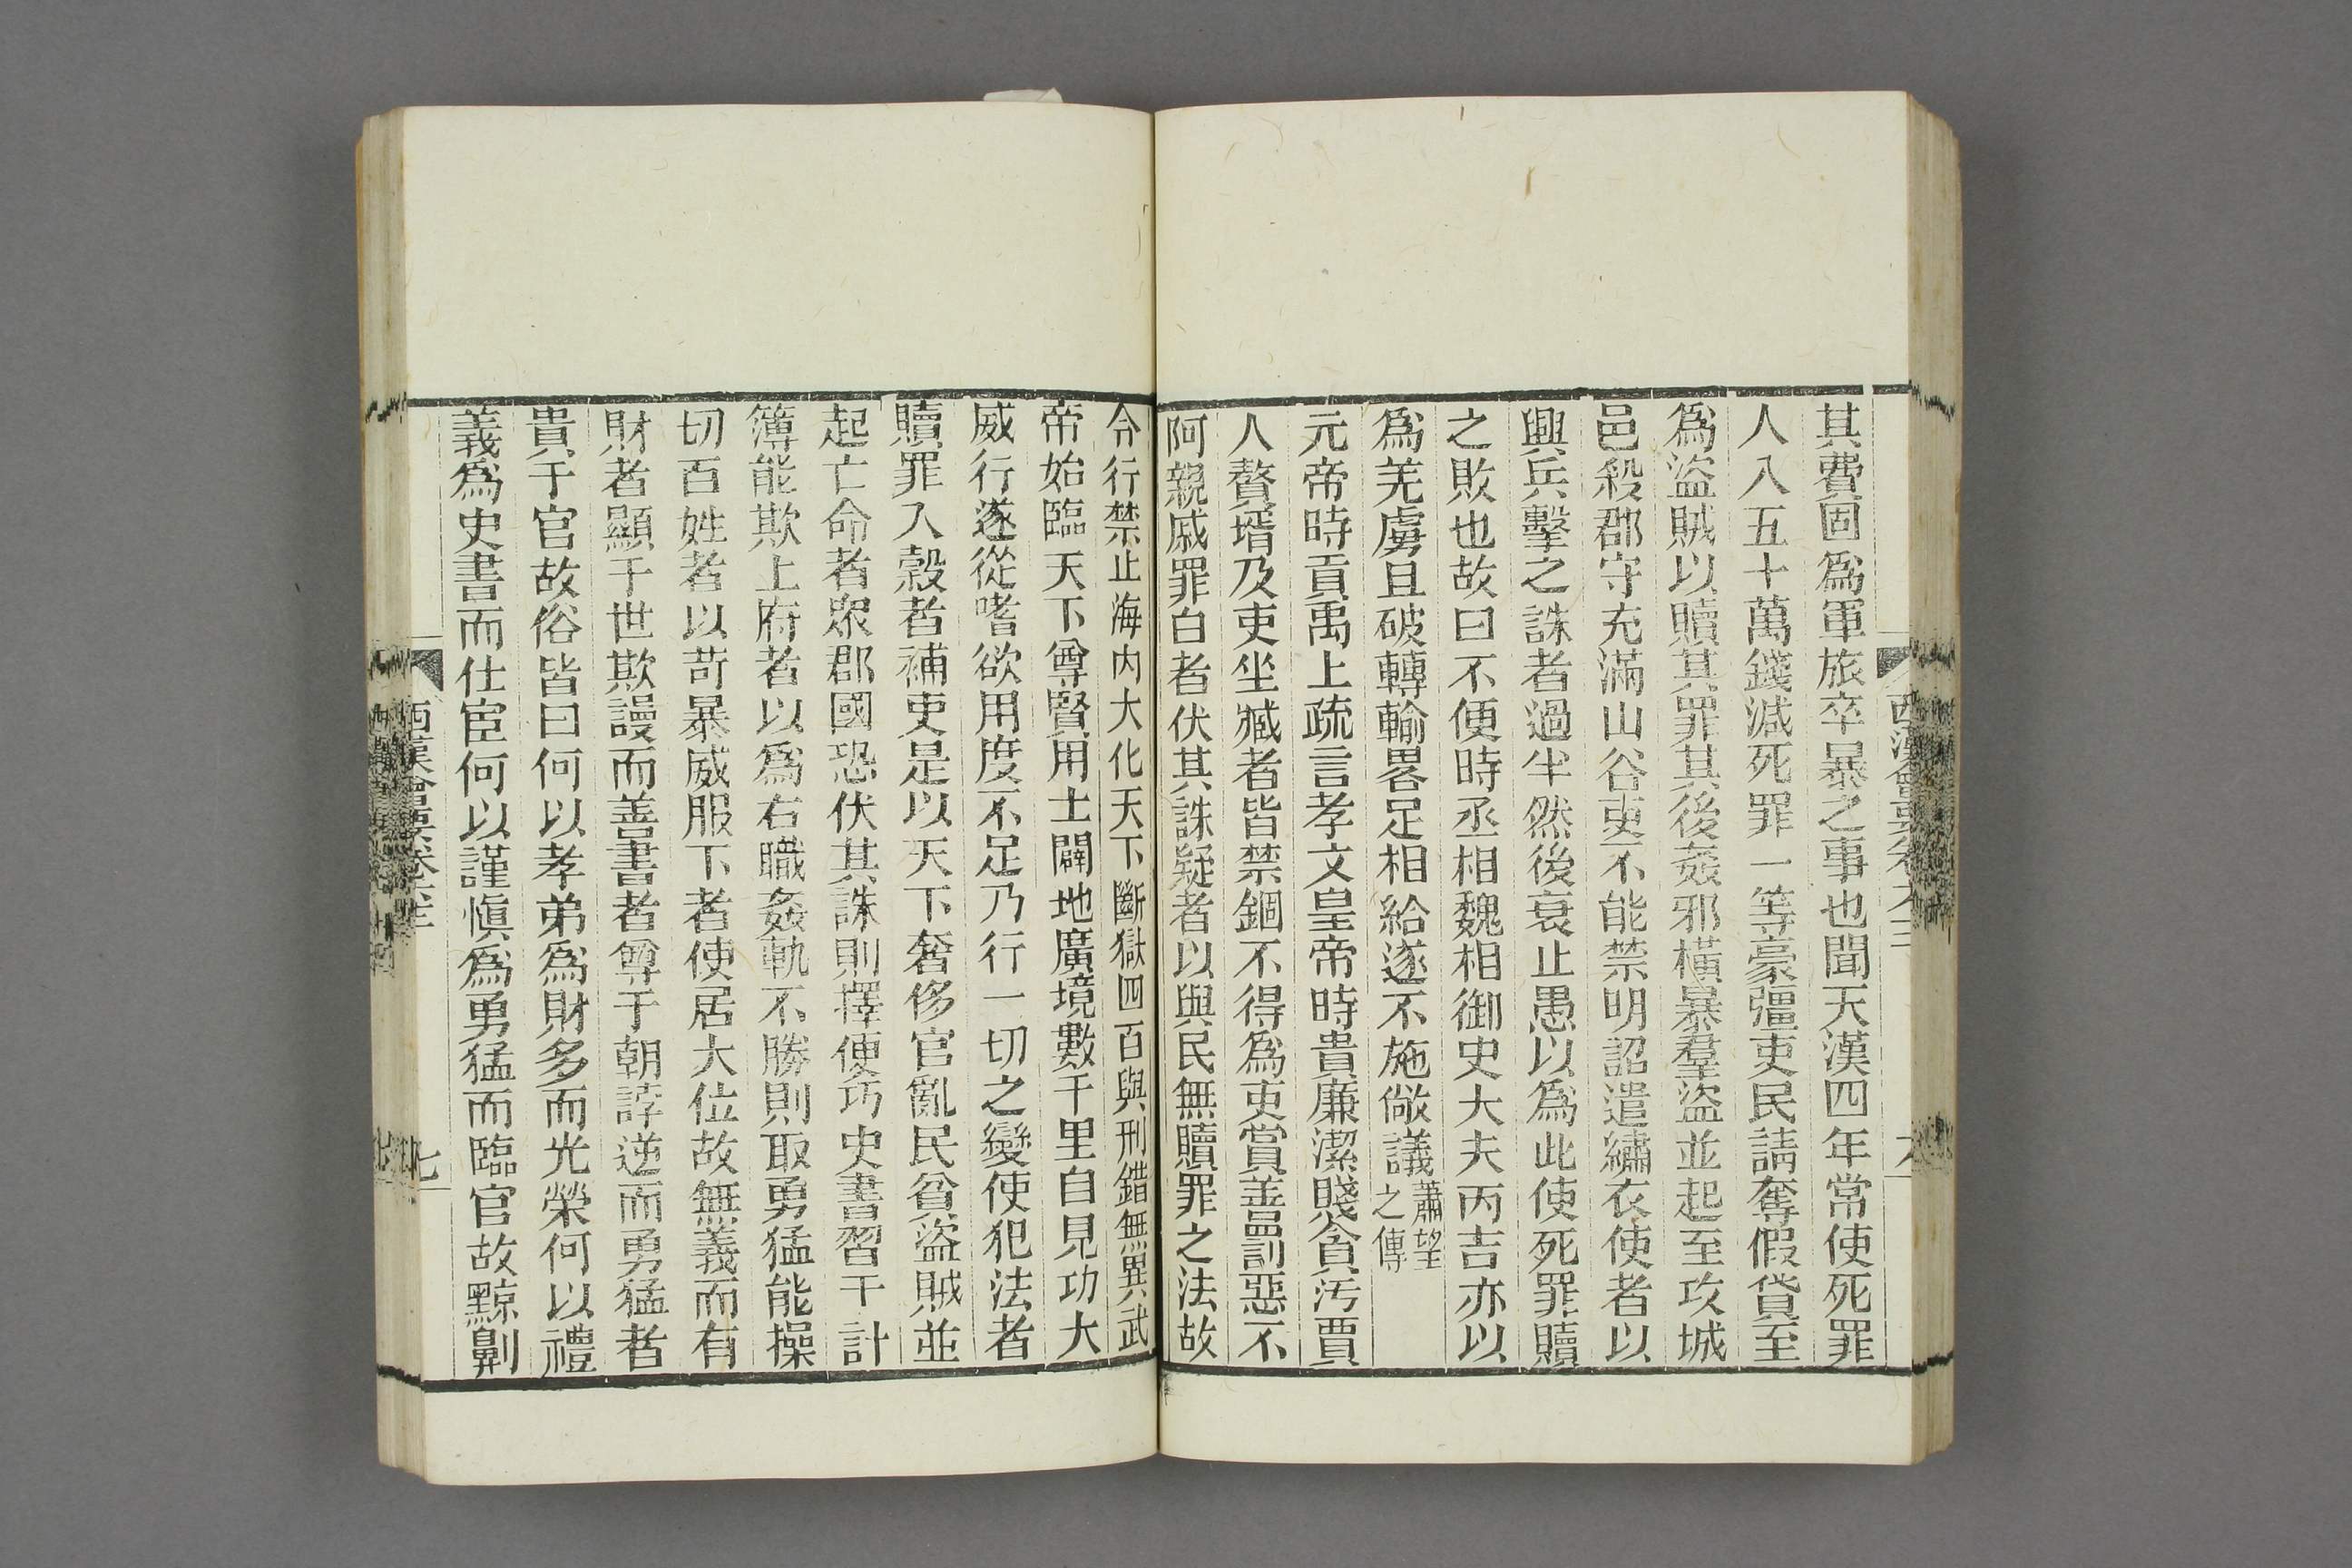 其費固爲軍旅卒暴之事也聞天漢四年常使死罪
人入五十萬錢減死罪一等豪彊吏民請奪假貸至
爲盜賊以贖其罪其後姦邪橫暴羣盜並起至攻城
邑殺郡守充滿山谷吏不能禁明詔遣繡衣使者以
興兵擊之誅者過半然後衰止愚以爲此使死罪贖
之敗也故曰不便時丞相魏相御史大夫丙吉亦以
爲羌虜且破轉輸畧足相給遂不施敞議蕭望之傳
元帝時貢禹上疏言孝文皇帝時貴廉潔賤貪汚賈
人贅壻及吏坐臧者皆禁錮不得爲吏賞善罰惡不
阿親戚罪白者伏其誅疑者以與民無贖罪之法故
令行禁止海内大化天下斷獄四百與刑錯無異武
帝始臨天下尊賢用士闢地廣境數千里自見功大
威行遂從嗜欲用度不足乃行一切之變使犯法者
贖罪入穀者補吏是以天下奢侈官亂民貧盜賊並
起亡命者衆郡國恐伏其誅則擇便巧史書習于計
簿能欺上府者以爲右職姦軌不勝則取勇猛能操
切百姓者以苛暴威服下者使居大位故無義而有
財者顯于世欺謾而善書者尊于朝誖逆而勇猛者
貴于官故俗皆曰何以孝弟爲財多而光榮何以禮
義爲史書而仕宦何以謹愼爲勇猛而臨官故黥劓